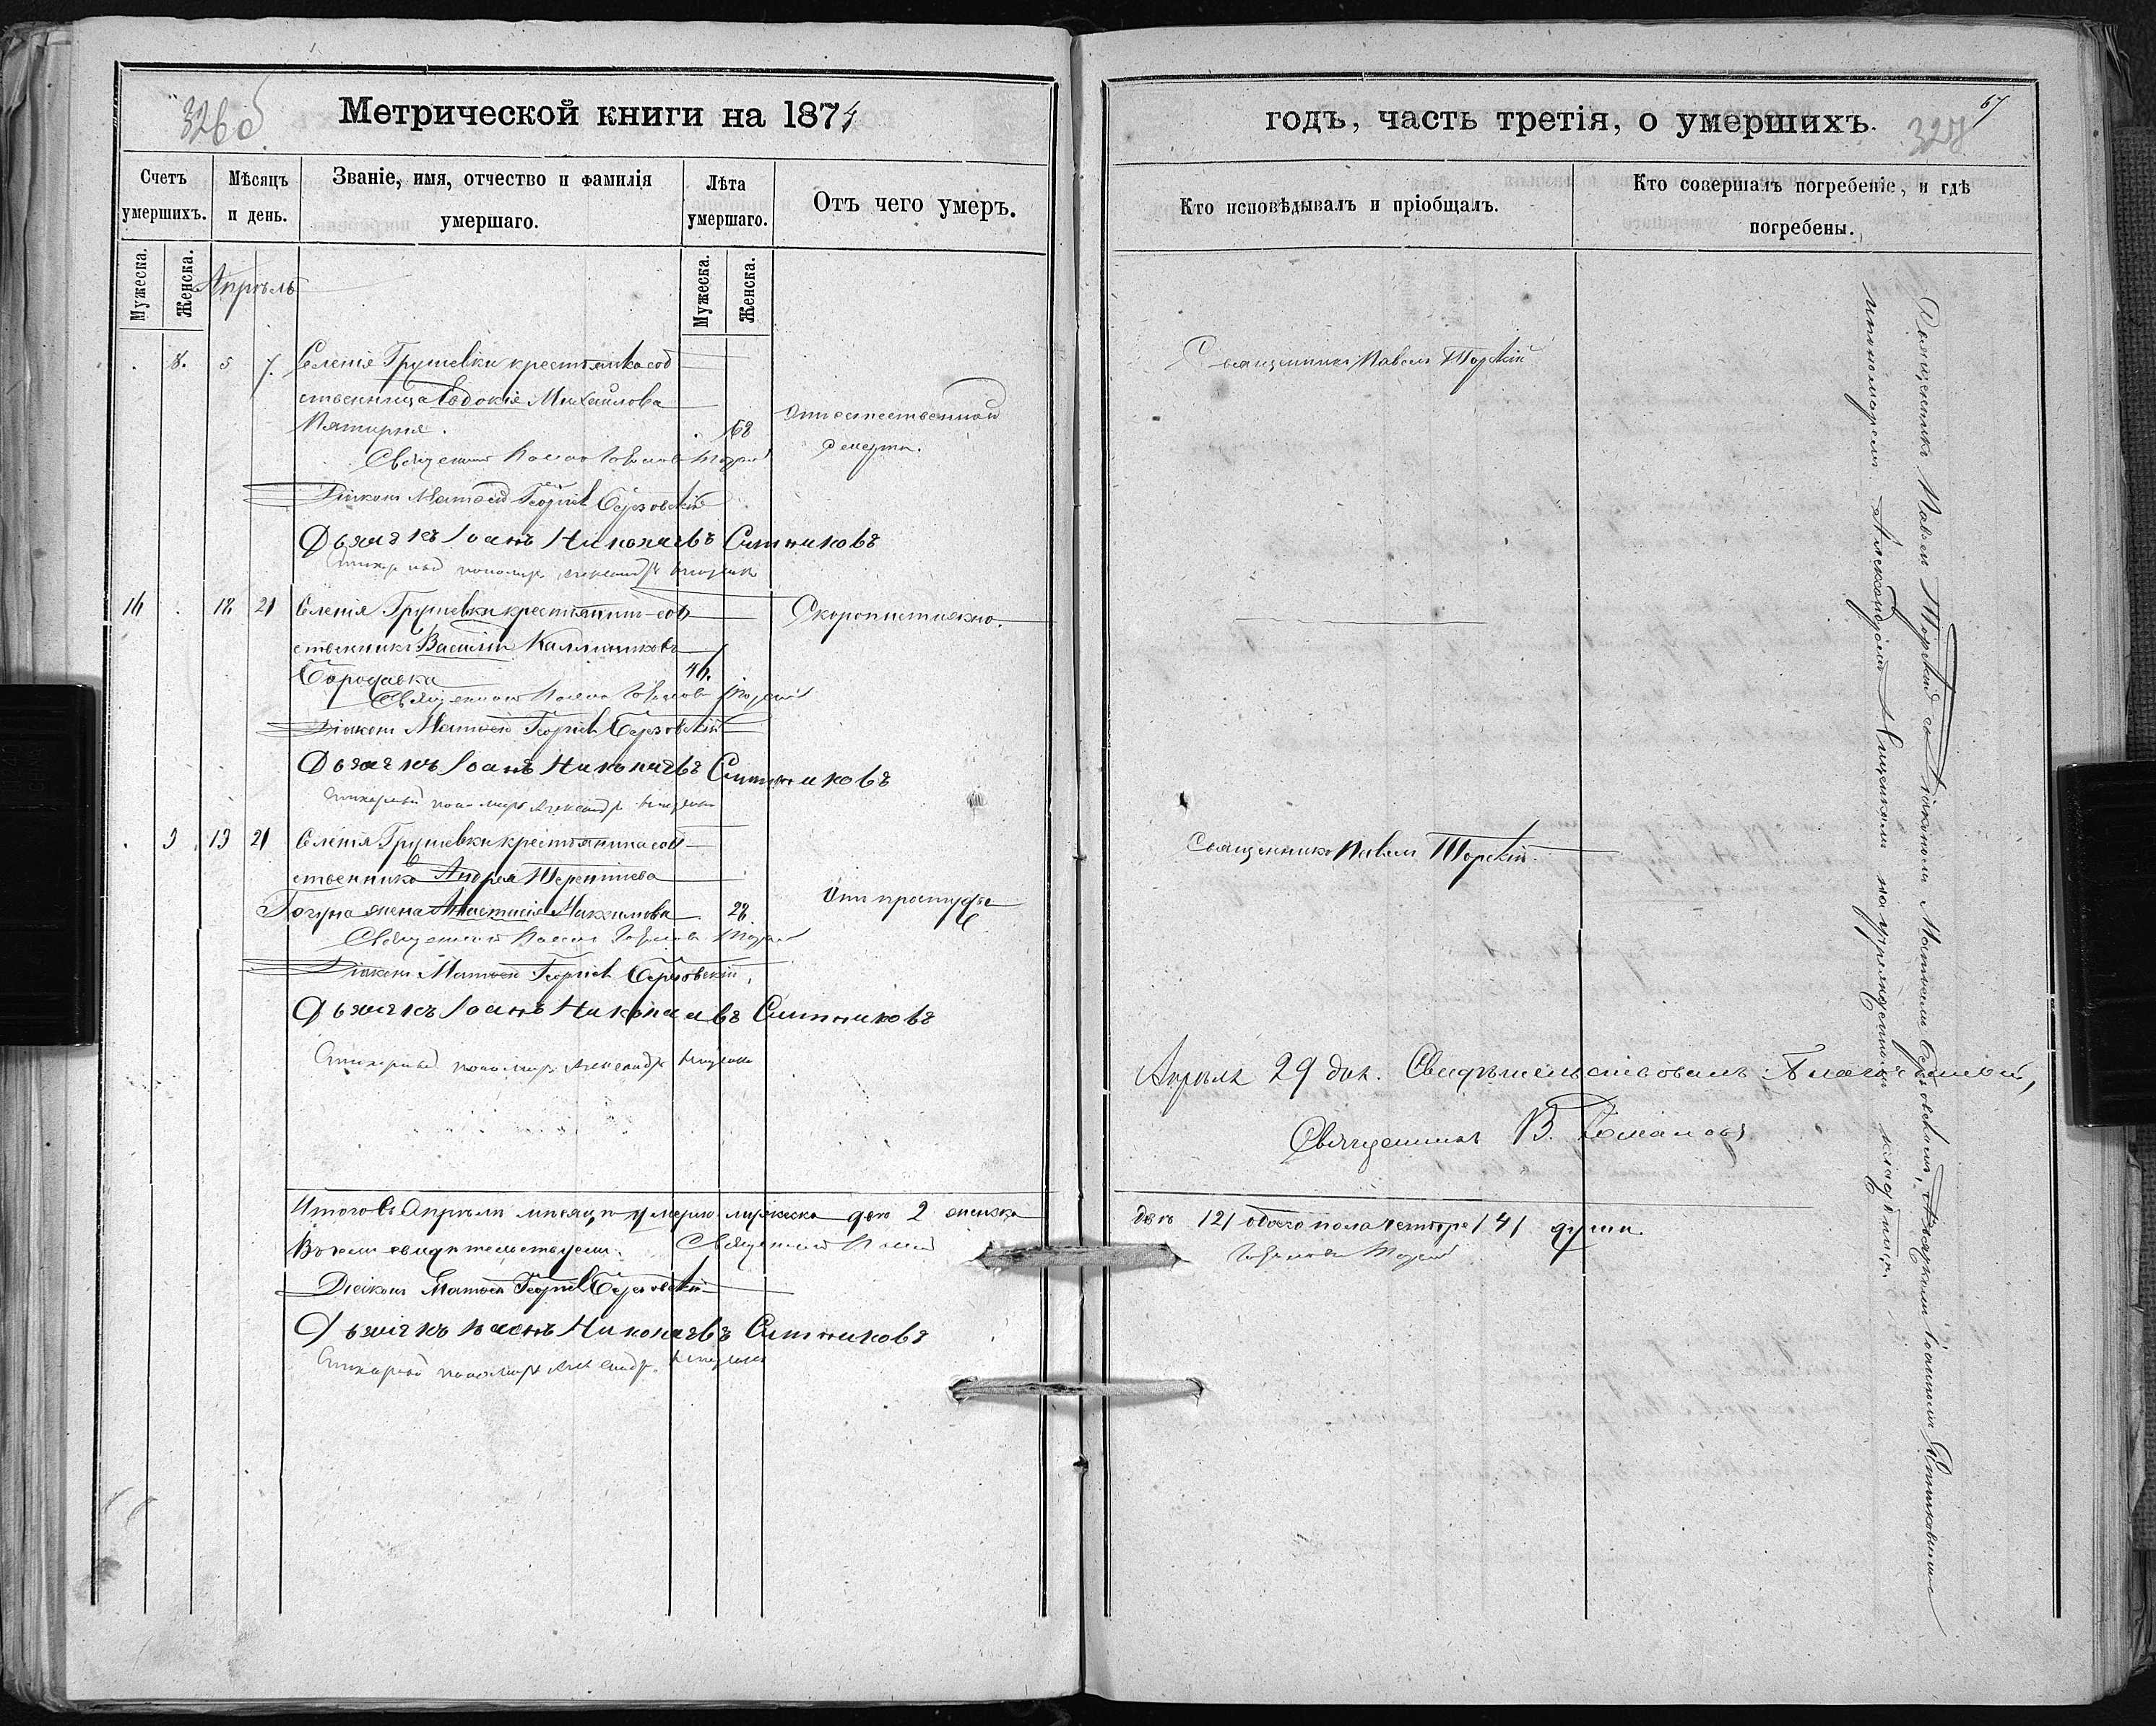 326об
Метрической книги на 1874
Счетъ умершихъ.
Мѣсяцъ и день.
Званіе, имя, отчество и фамилія умершаго.
Лѣта умершаго.
Отъ чего умеръ.
Мужеска.
Женска.
Мужеска.
Женска.
Апрѣль
8. 5 7. Селенія Грушевки крестьянка соб
ственница Евдокія Михайлова
68 От естественной
смерти.
Священникъ Павелъ Торскій
Діаконъ Матвей Георгіев Березовскій
Дьячекъ Іоанъ Николаевъ Ситниковъ
пономарь Александръ
16 18 21 Селенія Грушевки крестьянинъ соб
Скоропостижно.
ственникъ Василій Каллиниковъ
Бородавка
46.
Священникъ Павелъ Торскій
Діаконъ Матвей Георгіев Березовскій
Дьячекъ Іоанъ Николаевъ Ситниковъ
Стихарный пономарь Александръ
9 19 21 Селенія Грушевки крестьянина соб
ственника Андрея Терентіева
жена Анастасія Максимова 28. От простуды
Священникъ Павелъ Торскій
Діаконъ Матвей Георгіев Березовскій,
Дьячекъ Іоанъ Николаевъ Ситниковъ
Стихарный пономарь Александръ
Итого въ Апрѣлѣ месяцѣ умерло мужеска два 2 женска
Въ чемъ свидѣтельствуемъ: Священникъ Павелъ
Діаконъ Матвей Георгіев Березовскій
Дьячекъ Іоанъ Николаевъ Ситниковъ
Стихарный пономарь Александръ
67
327
годъ, часть третія, о умершихъ.
Кто исповѣдывалъ и пріобщалъ.
Кто совершалъ погребеніе, и гдѣ погребены.
Священникъ Павелъ Торскій
Священникъ Павелъ Торскій.
Священникъ Павелъ Торскій со Діакономъ Матвеемъ Березовскимъ, Дьячкомъ Іоанномъ Ситниковымъ
пономаремъ Александромъ на учрежденномъ кладбищѣ.
Апрѣля 29 дня. Свидѣтельствовалъ: Благочинный,
Священникъ В.
двѣ /2/ обоего пола четыре /4/ души.
Торскій